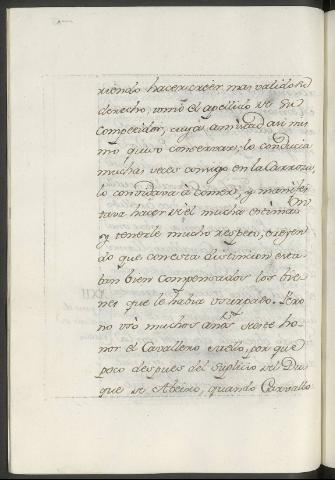 riendo hacer creer mas valido su
derecho, tomó el apellido de su
Competidor, cuya amistad asi mis
mo quiso conservar; lo conducia
muchas veces consigo en la Carroza,
lo convidava à Comer, y manifes
tava hacer de él mucha estimaⁿ
y tenerle mucho respeto, creyen
do que con esta distincion esta
tan bien compensados los bie
nes que le havia usurpado. Pero
no usó muchos años de este ho
nor el Cavallero suello, por que
poco despues del suplicio del Du
que de Abeiro, quando Carvallo